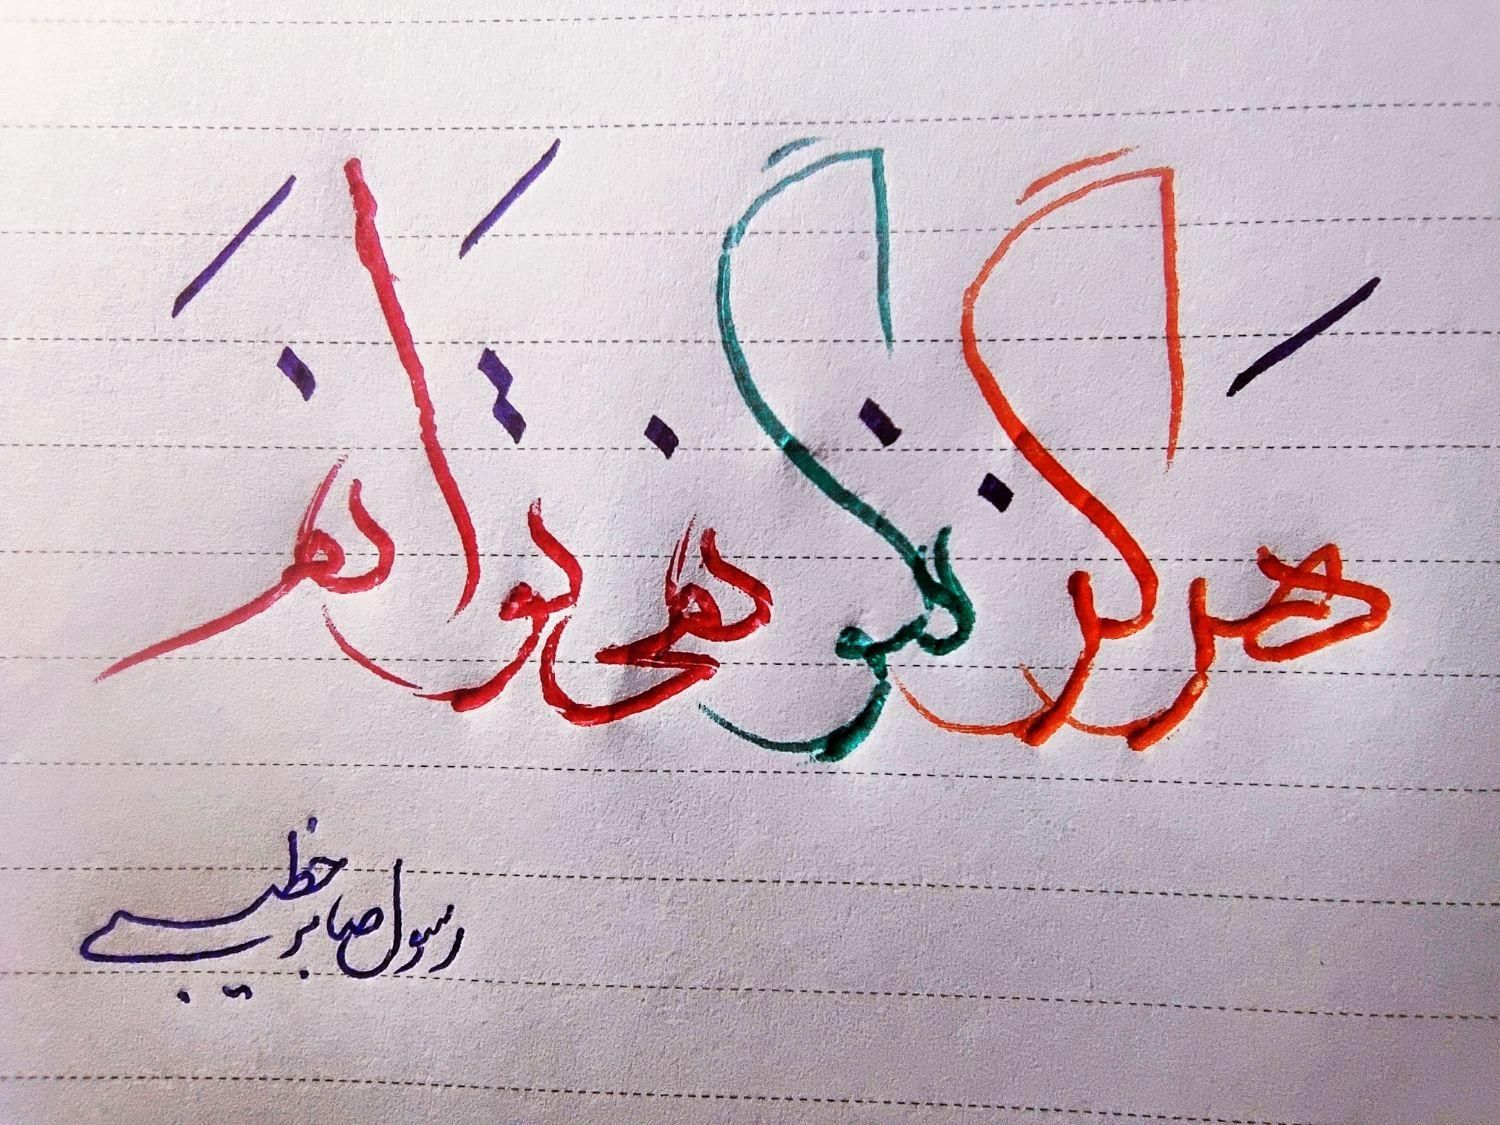 هَرگز نگو نمی تَوانَم
رسول صابر خطیبی